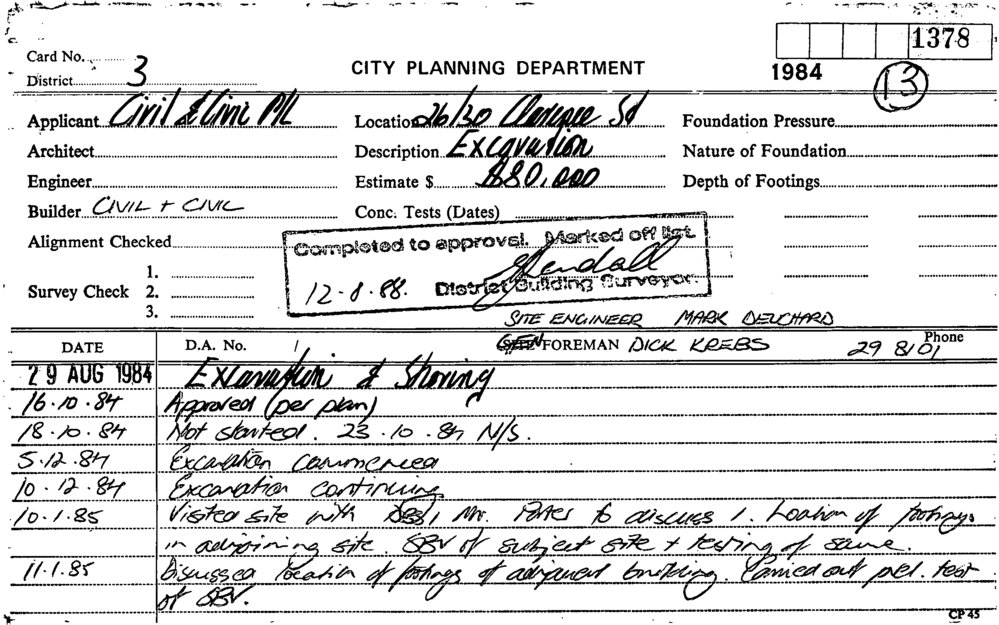 1378
Card No.
District 3
CITY PLANNING DEPARTMENT
1984
13
Applicant Civil & Civic P/L
Location 26/30 Clarence St
Foundation Pressure
Architect
Description Excavation
Nature of Foundation
Engineer
Estimate $ $80,000
Depth of Footings
Builder CIVIL + CIVIC
Conc. Tests (Dates)
Alignment Checked
Completed to approval. Marked off list.
12-8-88. District Building Surveyor.
Survey Check 1.
2.
3.
SITE ENGINEER MARK DEUCHARD
DATE D.A. No. GEN FOREMAN DICK KREBS 29 8101 Phone
29 AUG 1984 Excavation & Shoring
16.10.84 Approved (per plan)
18.10.84 Not started. 23.10.84 N/S.
5.12.84 Excavation commenced
10.12.84 Excavation continuing
10.1.85 Visited site with Mr. to discuss 1. Location of footings
in adjoining site. SBV of subject site + testing of same.
11.1.85 Discussed location of footings of adjacent building. Carried out prel. test
of SBV.
CP 45